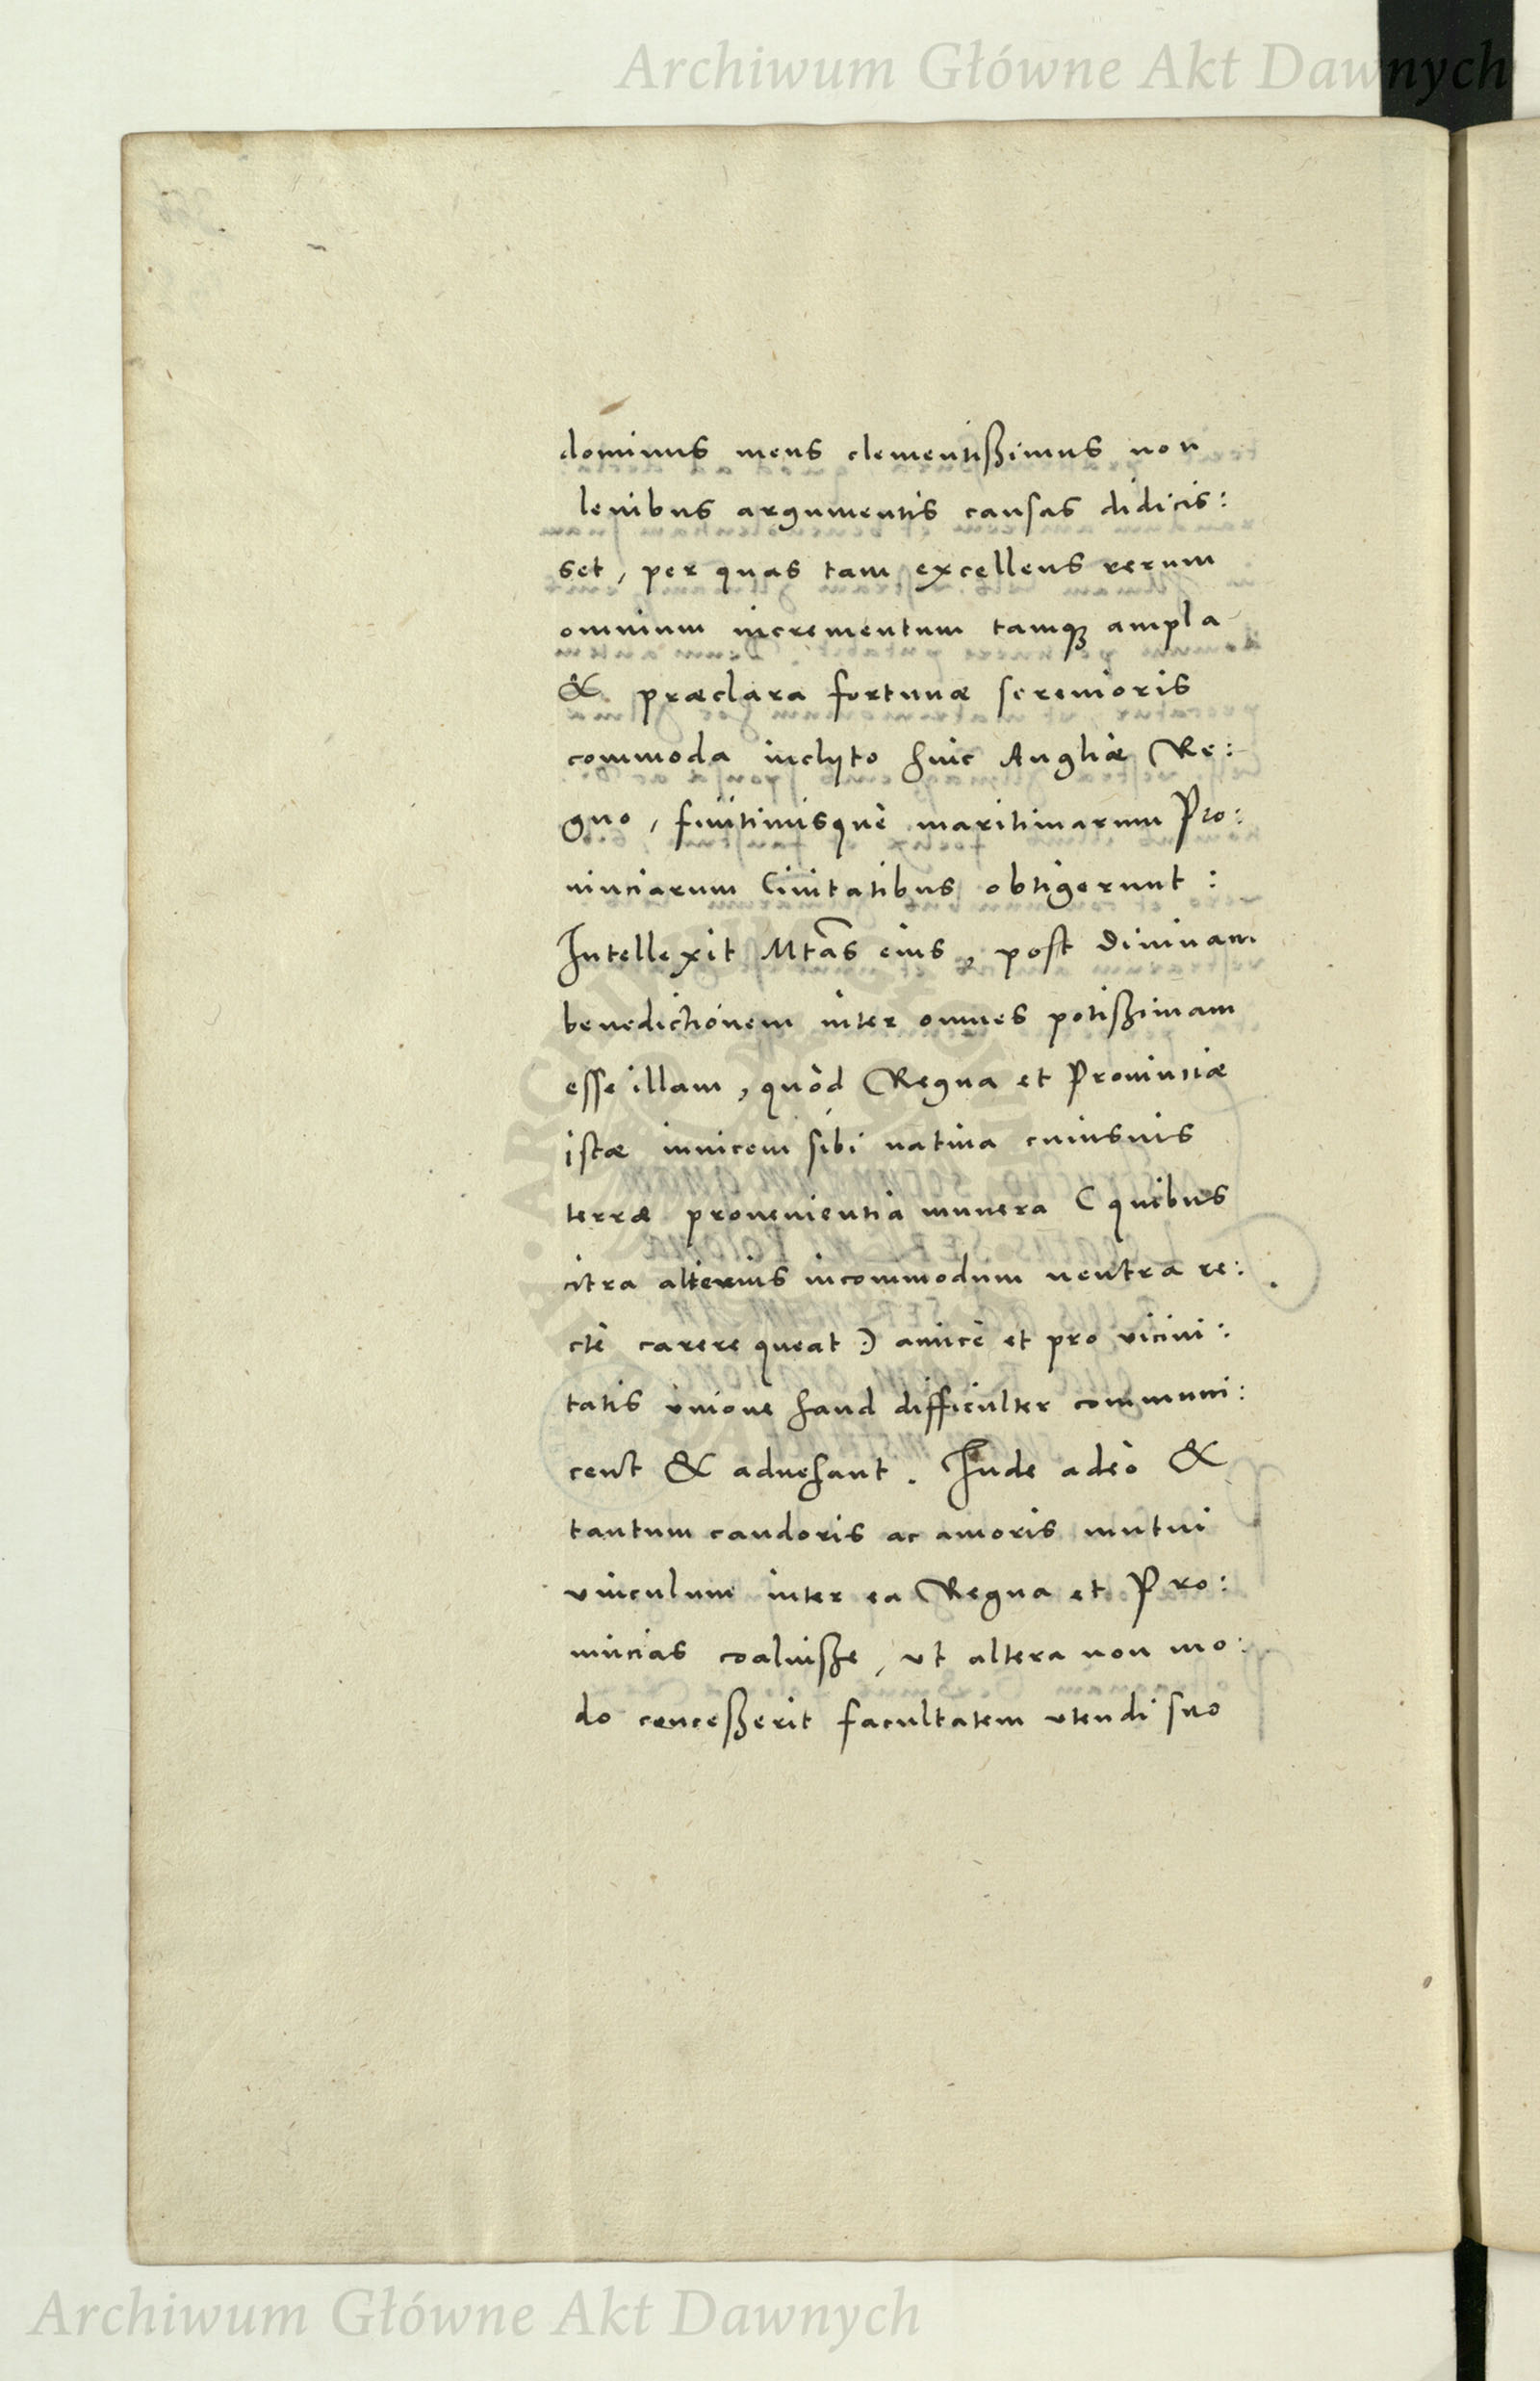 Archiwum Główne Akt Dawnych
dominus meus clementißimus non
leuibus argumentis causas didicis:
set, per quas tam excellens rerum
omnium incrementum tamqꝫ ampla
& præclara fortunæ serenioris
commoda inclyto huic Angliæ Re:
gno, finitimisquè maritimarum Pro:
uinciarum Ciuitatibus obtigerunt:
Intellexit Mtas eius, post diuinam
benedictionem inter omnes potißimam
esse illam, quòd Regna et Prouinciæ
istæ inuicem sibi natiua cuiusuis
terræ prouenientia munera ( quibus
citra alterius incommodum neutra re:
ctè carere queat :) amicè et pro vicini:
tatis vnione haud difficulter communi:
cent & aduehant. Inde adeò &
tantum candoris ac amoris mutui
vinculum inter ea Regna et Pro:
uincias coaluiße, vt altera non mo:
do conceßerit facultatem vtendi suo
Archiwum Główne Akt Dawnych